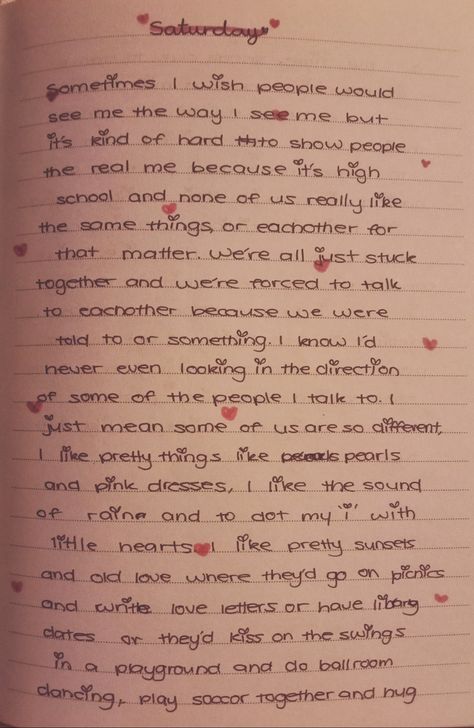 Saturday
Sometimes I wish people would
see me the way I see me but
it's kind of hard to show people
the real me because it's high
school and none of us really like
the same things, or eachother for
that matter. We're all just stuck
together and we're forced to talk
to eachother because we were
told to or something. I know I'd
never even looking in the direction
of some of the people I talk to. I
just mean some of us are so different,
I like pretty things like pearls
and pink dresses, I like the sound
of rain and to dot my 'i' with
little hearts. I like pretty sunsets
and old love where they'd go on picnics
and write love letters or have
dates or they'd kiss on the swings
in a playground and do ballroom
dancing, play soccor together and hug